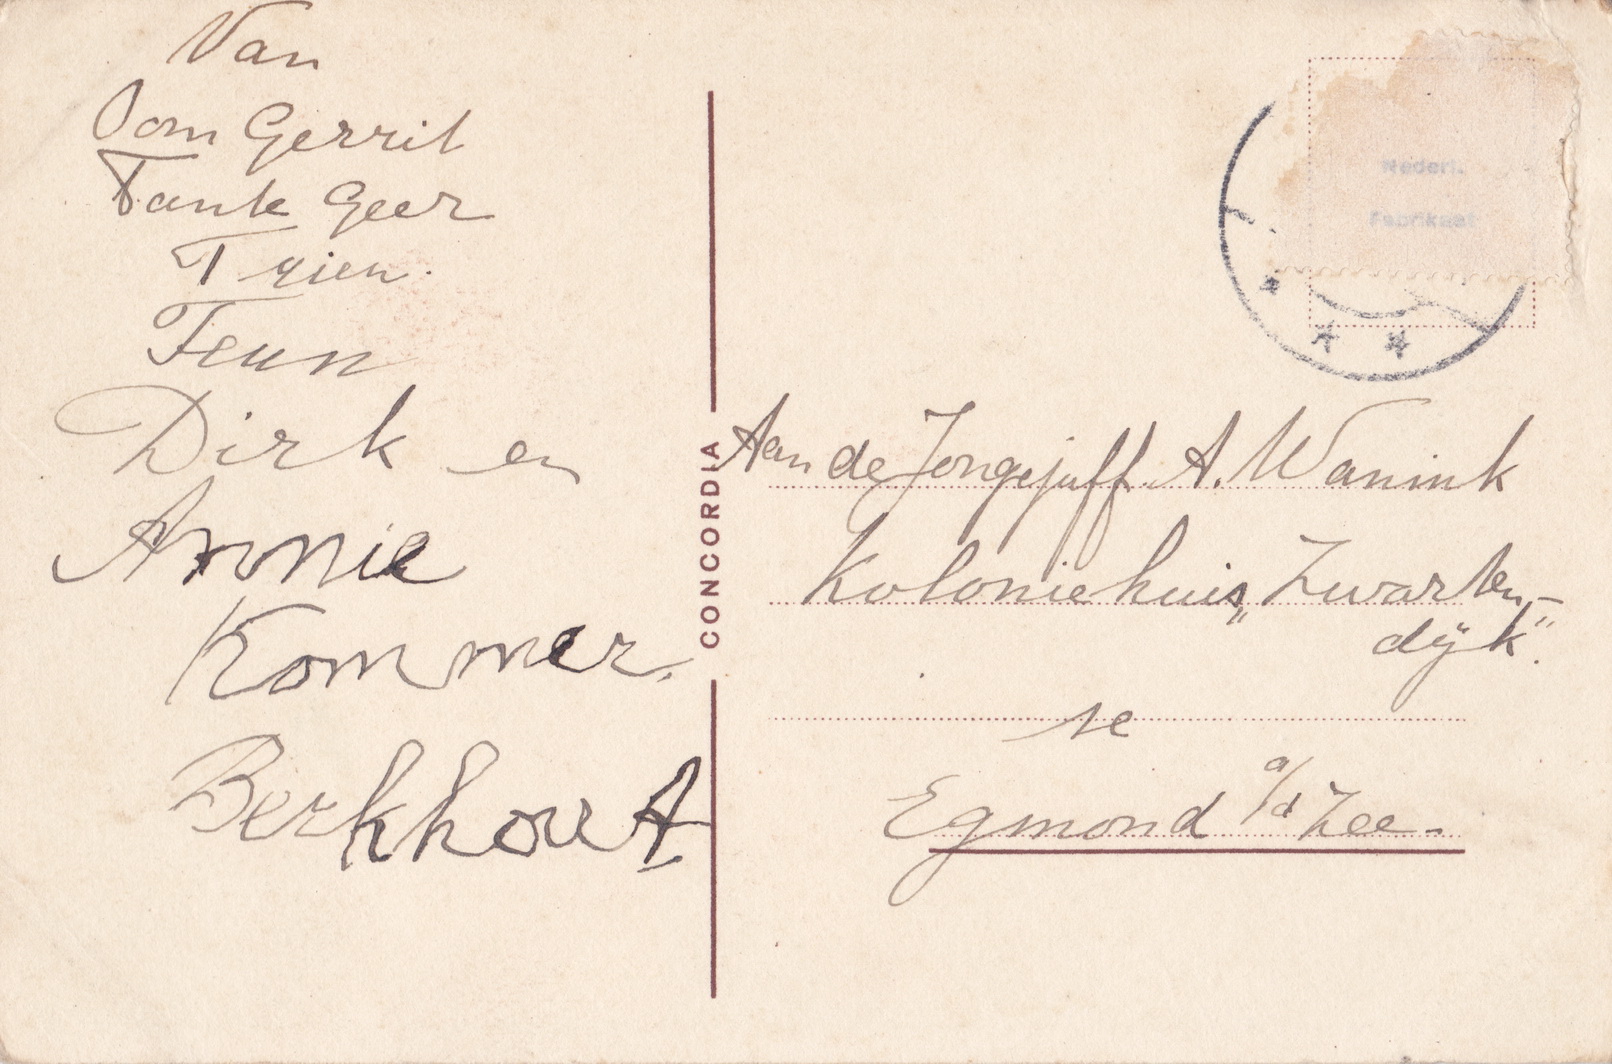 Van
Oom Gerrit
Tante Geer
Trien.
Teun
Dirk en
Annie
Kommer.
Berkhout
CONCORDIA
Nederl.
Fabrikaat
Aan de Jongejuff. A. Wanink
Koloniehuis „Zwarten-
dijk".
te
Egmond a/d Zee.